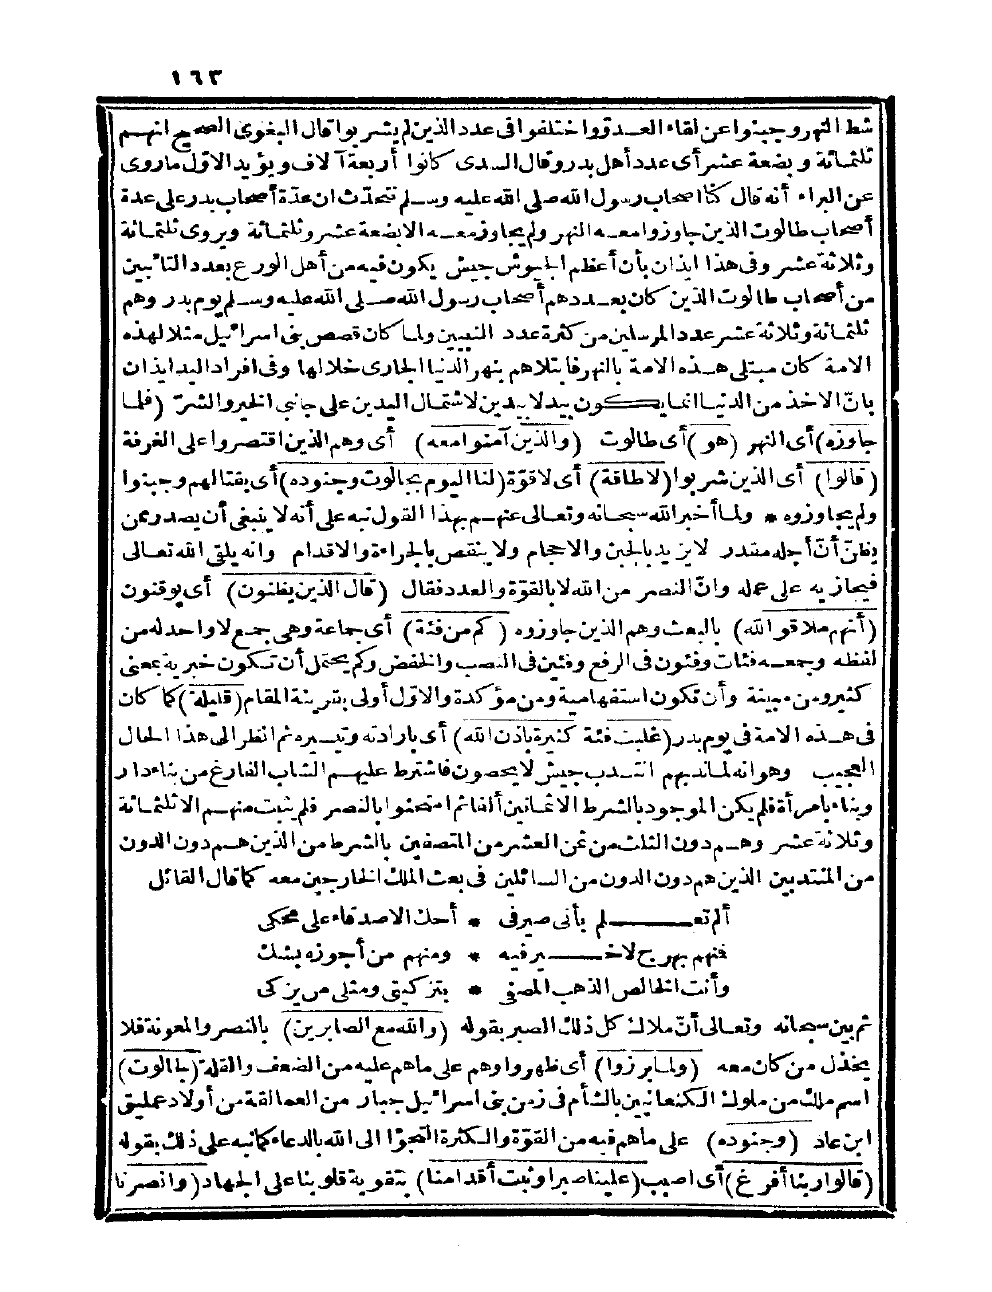 ١٦٣
شط النهر وجبنوا عن لقاء العدو واختلفوا فى عدد الذين لم يشربوا قال البغوى الصحيح انهم
ثلثمائة وبضعة عشر أى عدد أهل بدر وقال السدى كانوا أربعة آلاف ويؤيد الاول ماروى
عن البراء أنه قال كنا أصحاب رسول الله صلى الله عليه وسلم نتحدث ان عدة أصحاب بدر على عدة
أصحاب طالوت الذين جاوزوا معه النهر ولم يجاوز معه الا بضعة عشر وثلثمائة ويروى ثلثمائة
وثلاثة عشر وفى هذا ايذان بأن أعظم الجيوش جيش يكون فيه من أهل الورع بعدد الثابتين
من أصحاب طالوت الذين كان بعددهم أصحاب رسول الله صلى الله عليه وسلم يوم بدر وهم
ثلثمائة وثلاثة عشر عدد المرسلين من كثرة عدد النبيين ولما كان قصص بنى اسرائيل مثلا لهذه
الامة كان مبتلى هذه الامة بالنهر فابتلاهم بنهر الدنيا الجارى خلالها وفى افراد اليد ايذان
بأن الاخذ من الدنيا انما يكون بيد لا بيدين لاشتمال اليدين على جانبى الخير والشر (فلما
جاوزه) أى النهر (هو) أى طالوت (والذين آمنوا معه) أى وهم الذين اقتصروا على الغرفة
(قالوا) أى الذين شربوا (لا طاقة) أى لا قوّة (لنا اليوم بجالوت وجنوده) أى بقتالهم وجبنوا
ولم يجاوزوه * ولما أخبر الله سبحانه وتعالى عنهم بهذا القول نبه على أنه لا ينبغى أن يصدر ممن
يظنّ أنّ أجله مقدر لا يزيد بالجبن والاحجام ولا ينقص بالجراءة والاقدام وانه يلقى الله تعالى
فيجازيه على عمله وانّ النصر من الله لا بالقوّة والعدد فقال (قال الذين يظنون) أى يوقنون
(أنهم ملاقو الله) بالبعث وهم الذين جاوزوه (كم من فئة) أى جماعة وهى جمع لا واحد له من
لفظه وجمعه فئات وفئون فى الرفع وفئين فى النصب والخفض وكم يحتمل أن تكون خبرية بمعنى
كثير ومن مبينة وأن تكون استفهامية ومن مؤكدة والاوّل أولى بقرينة المقام (قليلة) كما كان
فى هذه الامة فى يوم بدر (غلبت فئة كثيرة باذن الله) أى بارادته وتيسيره ثم انظر الى هذا الحال
العجيب وهو انه لما ندبهم انتدب جيش لا يحصون فاشترط عليهم الشاب الفارغ من بناء دار
وبناء بامرأة فلم يكن الموجود بالشرط الا ثمانين ألفا ثم امتحنوا بالنصر فلم يثبت منهم الا ثلثمائة
وثلاثة عشر وهم دون الثلث من ثمن العشر من المتصفين بالشرط من الذين هم دون الدون
من المنتدبين الذين هم دون الدون من السائلين فى بعث الملك الخارجين معه كما قال القائل
ألم تعلم بأنى صيرفى * أحك الاصدقاء على محكى
فمنهم بهرج لا خير فيه * ومنهم من أجوزه بشك
وأنت الخالص الذهب المصفى * بتزكيتى ومثلى من يزكى
ثم بين سبحانه وتعالى أنّ ملاك كل ذلك الصبر بقوله (والله مع الصابرين) بالنصر والمعونة فلا
يخذل من كان معه (ولما برزوا) أى ظهروا وهم على ما هم عليه من الضعف والقلة (لجالوت)
اسم ملك من ملوك الكنعانيين بالشأم فى زمن بنى اسرائيل جبار من العمالقة من أولاد عمليق
ابن عاد (وجنوده) على ما هم فيه من القوّة والكثرة التجؤا الى الله بالدعاء كما نبه على ذلك بقوله
(قالوا ربنا أفرغ) أى اصبب (علينا صبرا وثبت أقدامنا) بتقوية قلوبنا على الجهاد (وانصرنا